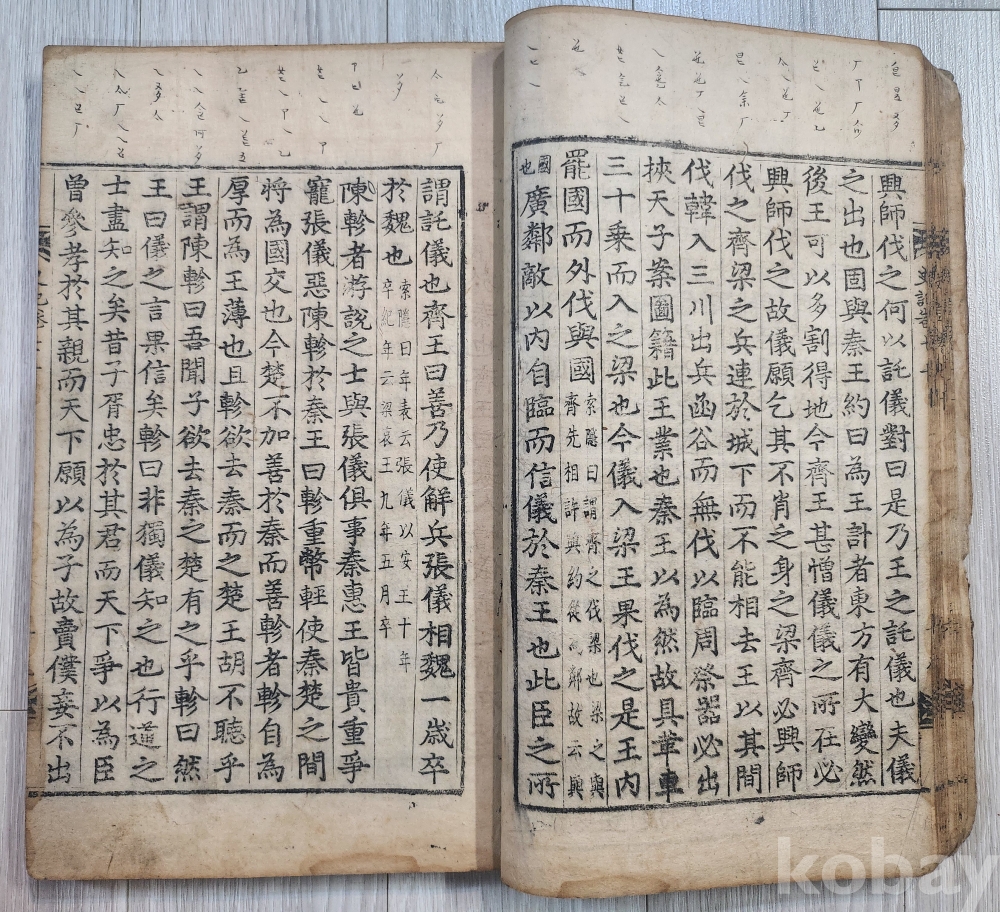 興師伐之何以託儀對曰是乃王之託儀也夫儀
之出也固與秦王約曰為王計者東方有大變然
後王可以多割得地今齊王甚憎儀儀之所在必
興師伐之故儀願乞其不肖之身之梁齊必興師
伐之齊梁之兵連於城下而不能相去王以其間
伐韓入三川出兵函谷而無伐以臨周祭器必出
挾天子案圖籍此王業也秦王以為然故具革車
三十乗而入之梁也今儀入梁王果伐之是王内
罷國而外伐與國索隱曰謂齊之伐梁也梁之與
齊先相許與約從為鄰故云與
國也廣鄰敵以内自臨而信儀於秦王也此臣之所
謂託儀也齊王曰善乃使解兵張儀相魏一歳卒
於魏也索隱曰年表云張儀以安王十年
卒紀年云梁哀王九年五月卒
陳軫者游説之士與張儀俱事秦惠王皆貴重爭
寵張儀惡陳軫於秦王曰軫重幣輕使秦楚之間
將為國交也今楚不加善於秦而善軫者軫自為
厚而為王薄也且軫欲去秦而之楚王胡不聽乎
王謂陳軫曰吾聞子欲去秦之楚有之乎軫曰然
王曰儀之言果信矣軫曰非獨儀知之也行道之
士盡知之矣昔子胥忠於其君而天下爭以為臣
曾參孝於其親而天下願以為子故賣僕妾不出
kobay